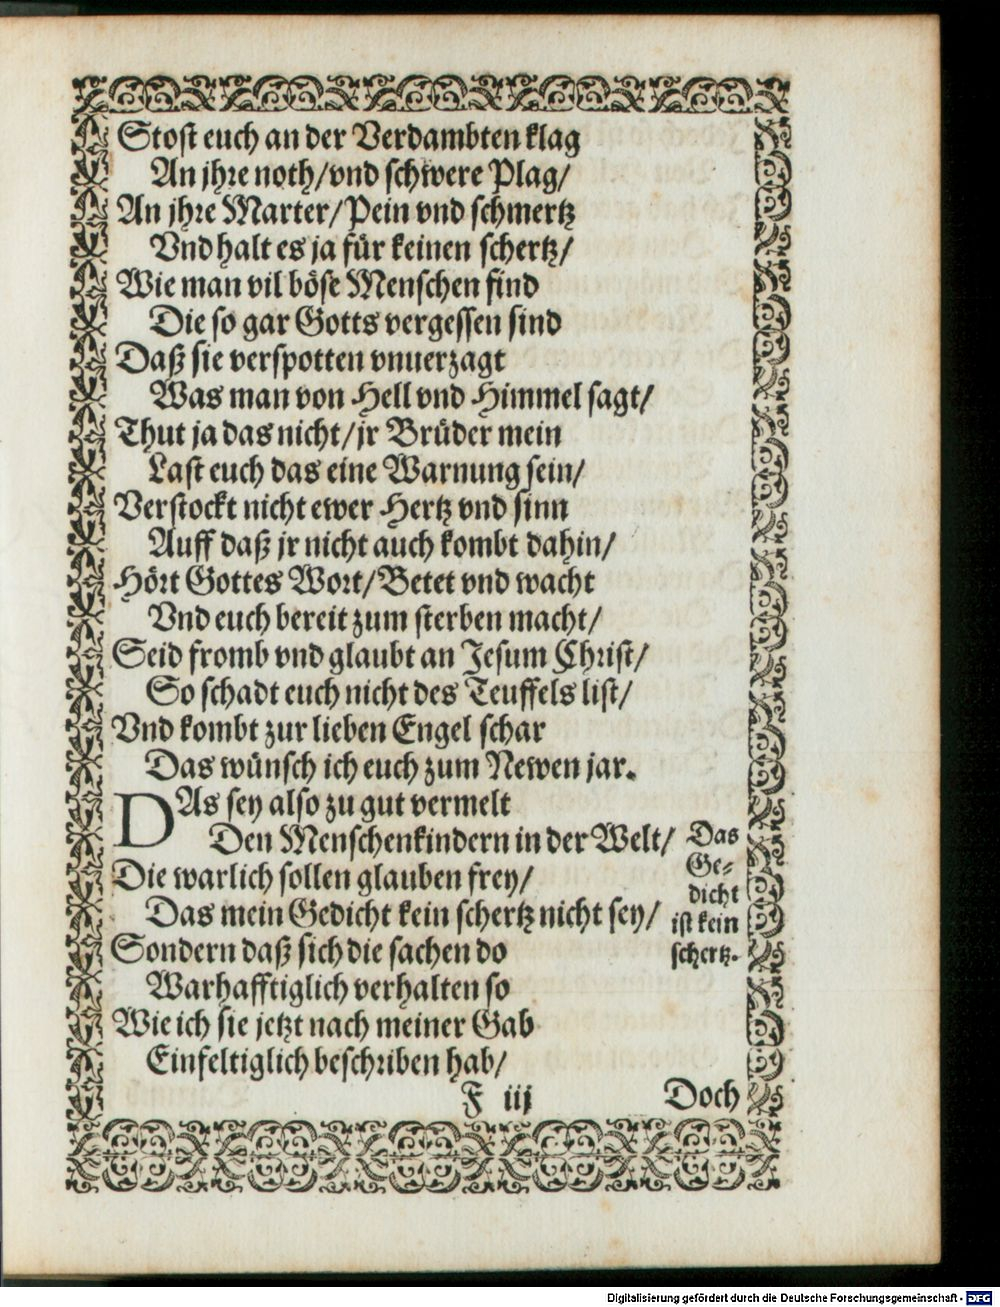 Stost euch an der Verdambten klag
An jhre noth/vnd schwere Plag/
An jhre Marter/Pein vnd schmertz
Vnd halt es ja für keinen schertz/
Wie man vil böse Menschen find
Die so gar Gotts vergessen sind
Daß sie verspotten vnuerzagt
Was man von Hell vnd Himmel sagt/
Thut ja das nicht/jr Brüder mein
Last euch das eine Warnung sein/
Verstockt nicht ewer Hertz vnd sinn
Auff daß jr nicht auch kombt dahin/
Hört Gottes Wort/Betet vnd wacht
Vnd euch bereit zum sterben macht/
Seid fromb vnd glaubt an Jesum Christ/
So schadt euch nicht des Teuffels list/
Vnd kombt zur lieben Engel schar
Das wünsch ich euch zum Newen jar.
DAs sey also zu gut vermelt
Den Menschenkindern in der Welt/
Die warlich sollen glauben frey/
Das mein Gedicht kein schertz nicht sey/
Sondern daß sich die sachen do
Warhafftiglich verhalten so
Wie ich sie jetzt nach meiner Gab
Einfeltiglich beschriben hab/
Das
Ge-
dicht
ist kein
schertz.
F iij
Doch
Digitalisierung gefördert durch die Deutsche Forschungsgemeinschaft - DFG